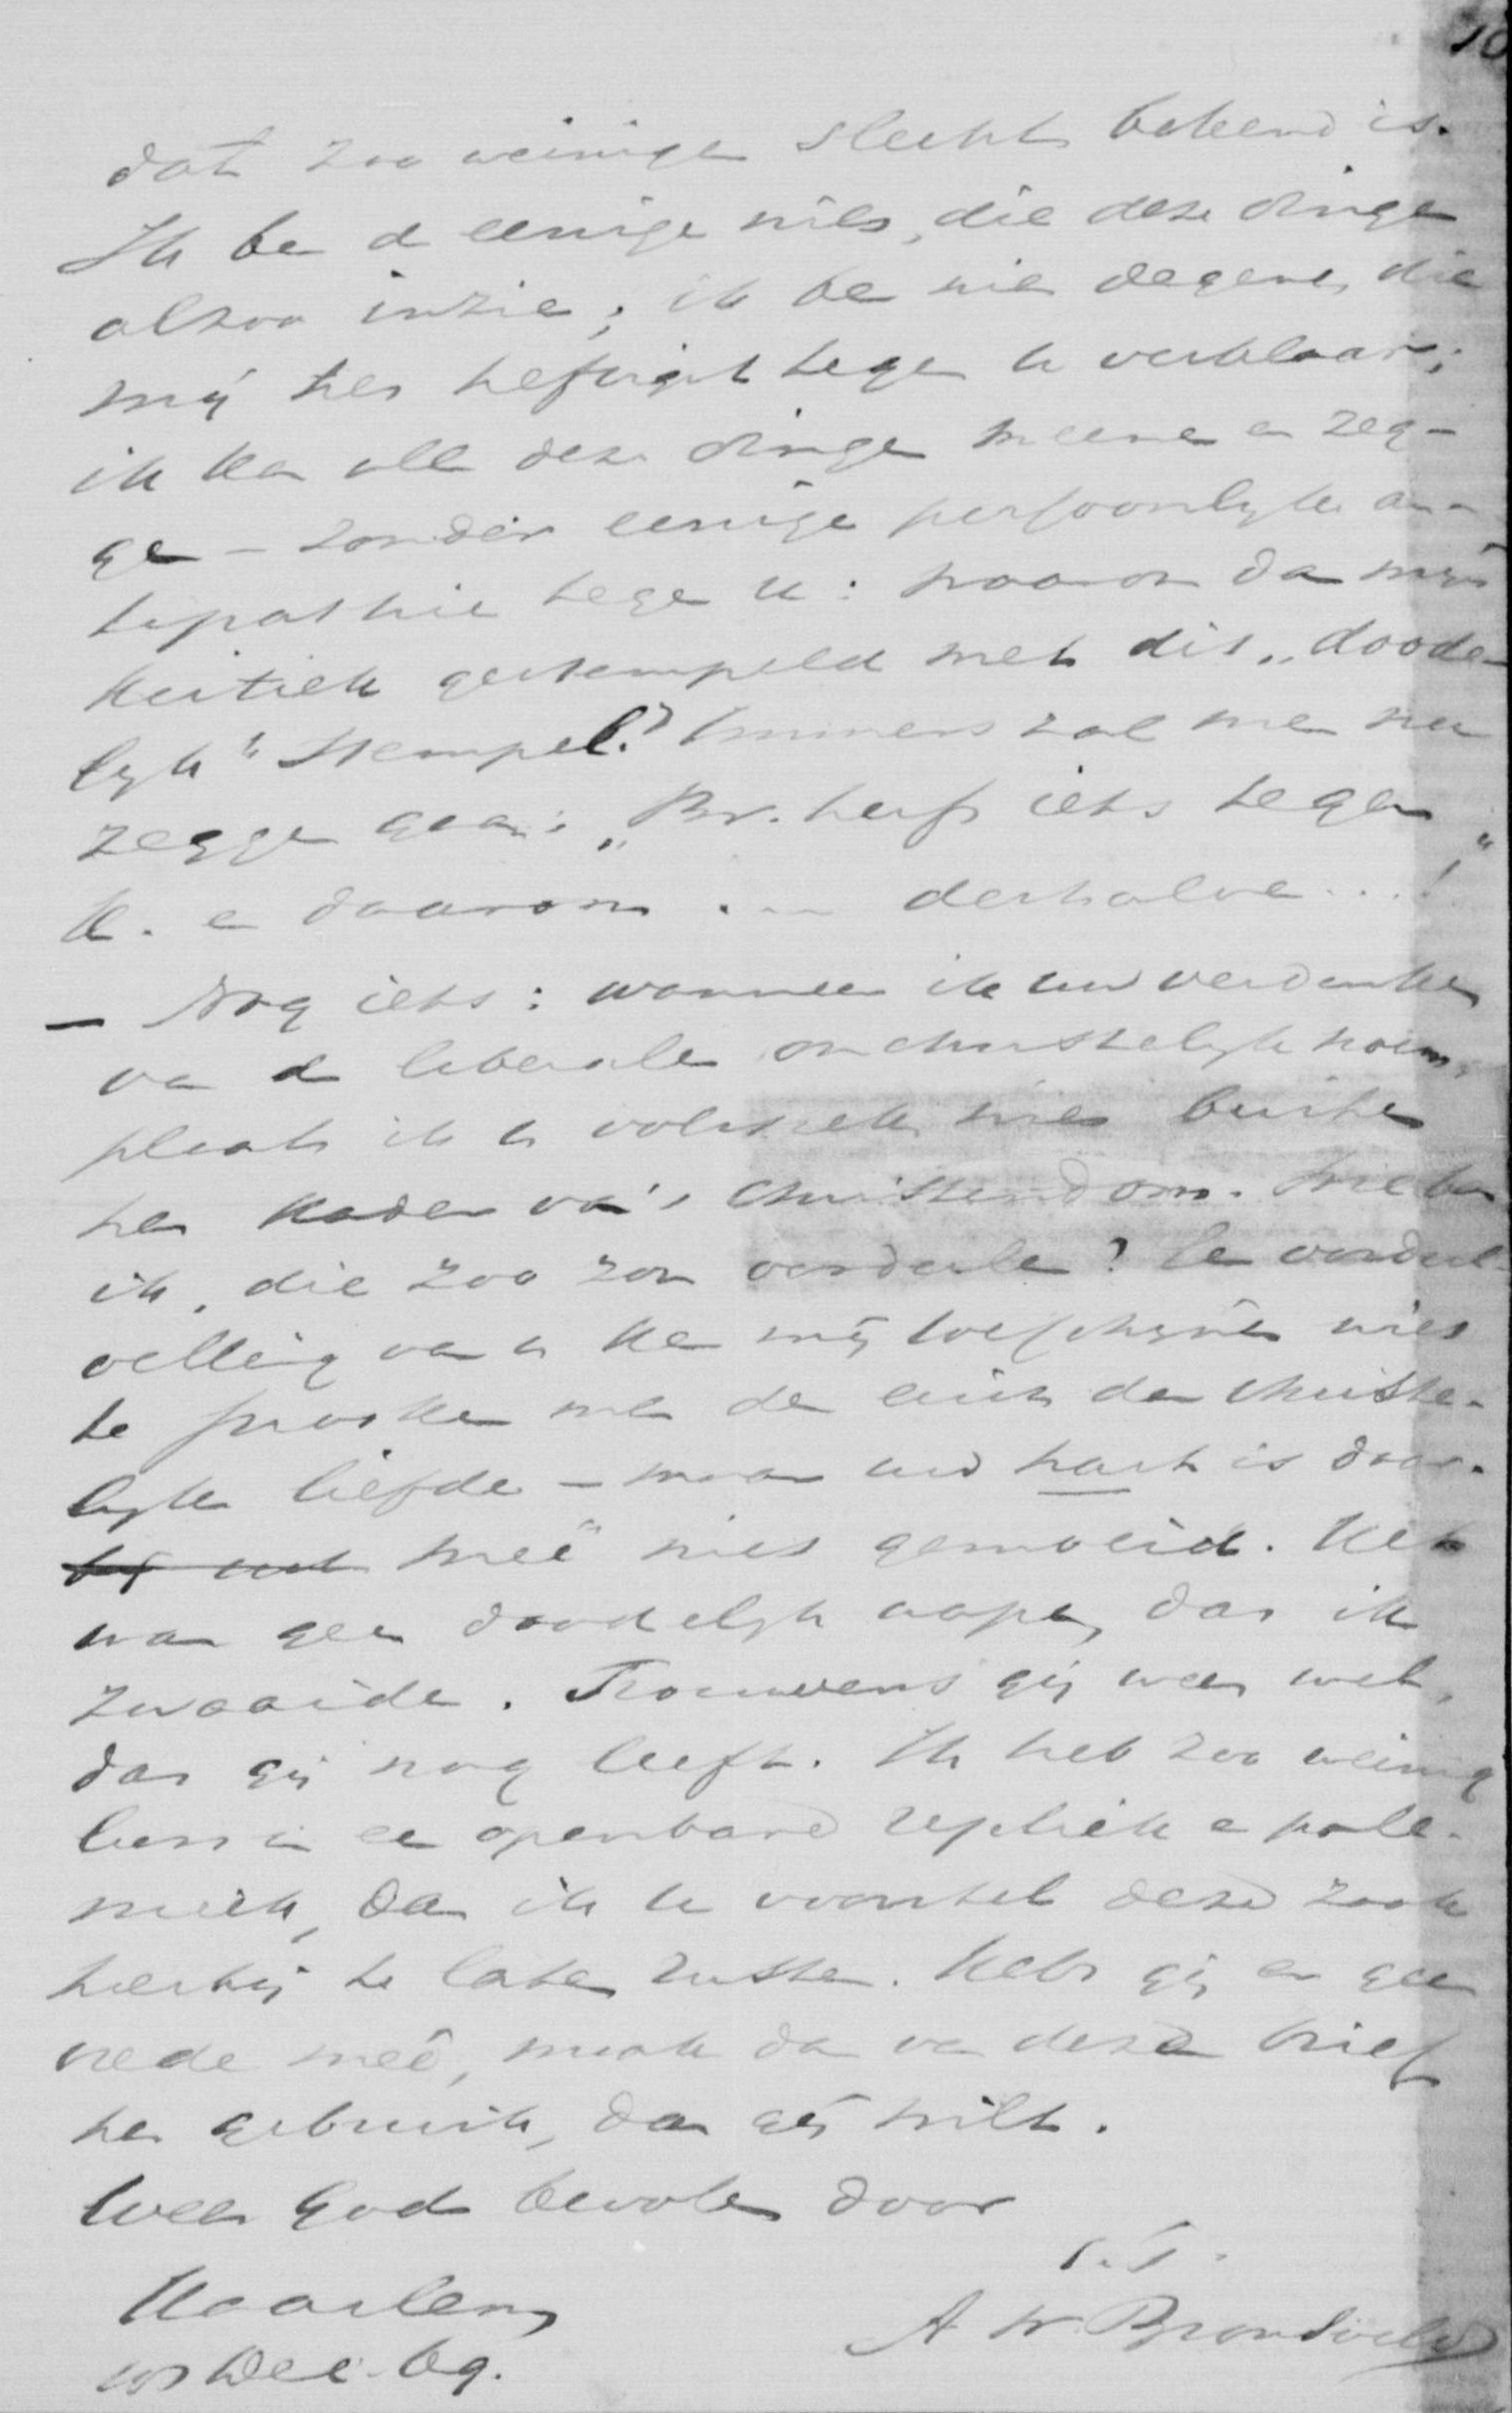 10
dat zoo weinige slechts bekend is.
Ik be de eenige niet, die deze dinge
alzoo inzie; ik be niet degene, die
mij het heftigst tege u verklaar;
ik ka all deze dinge meene e zeg-
ge – zonder eenige persoonlyke an-
tipathie tege u: waarom da mijn
kritiek gestempeld met dit „doode-
lyk" stempel? Immers zal me nu
zegge gaan: „Br. heeft iets tegen
K. e daarom ... derhalve ...!"
– Nog iets: wanneer ik uw verdenken
va de liberale onchristelyk noem,
plaats ik u volstrekt niet buiten
het kader va 't Christendom. Wie be
ik, die zoo zou oordeele? Je oordeel-
velling va u ke mij toeschijnen niet
te strooke met de eisch der christe-
lyke liefde – maar uw hart is daar-
meê niet gemoeid. Het
was gee doodelyk wape, dat ik
zwaaide. Trouwens gij weet wel,
dat gij nog leeft. Ik heb zoo weinig
lust in ee openbare repliek e pole-
miek, dat ik u voorstel deze zaak
hierbij te laten ruste. Hebt gij er gee
vrede meê, maak da va deze brief
het gebruik, dat gij wilt.
Wees God bevolen door
t.t.
Haarlem A W. Bronsveld
Dec. 69.